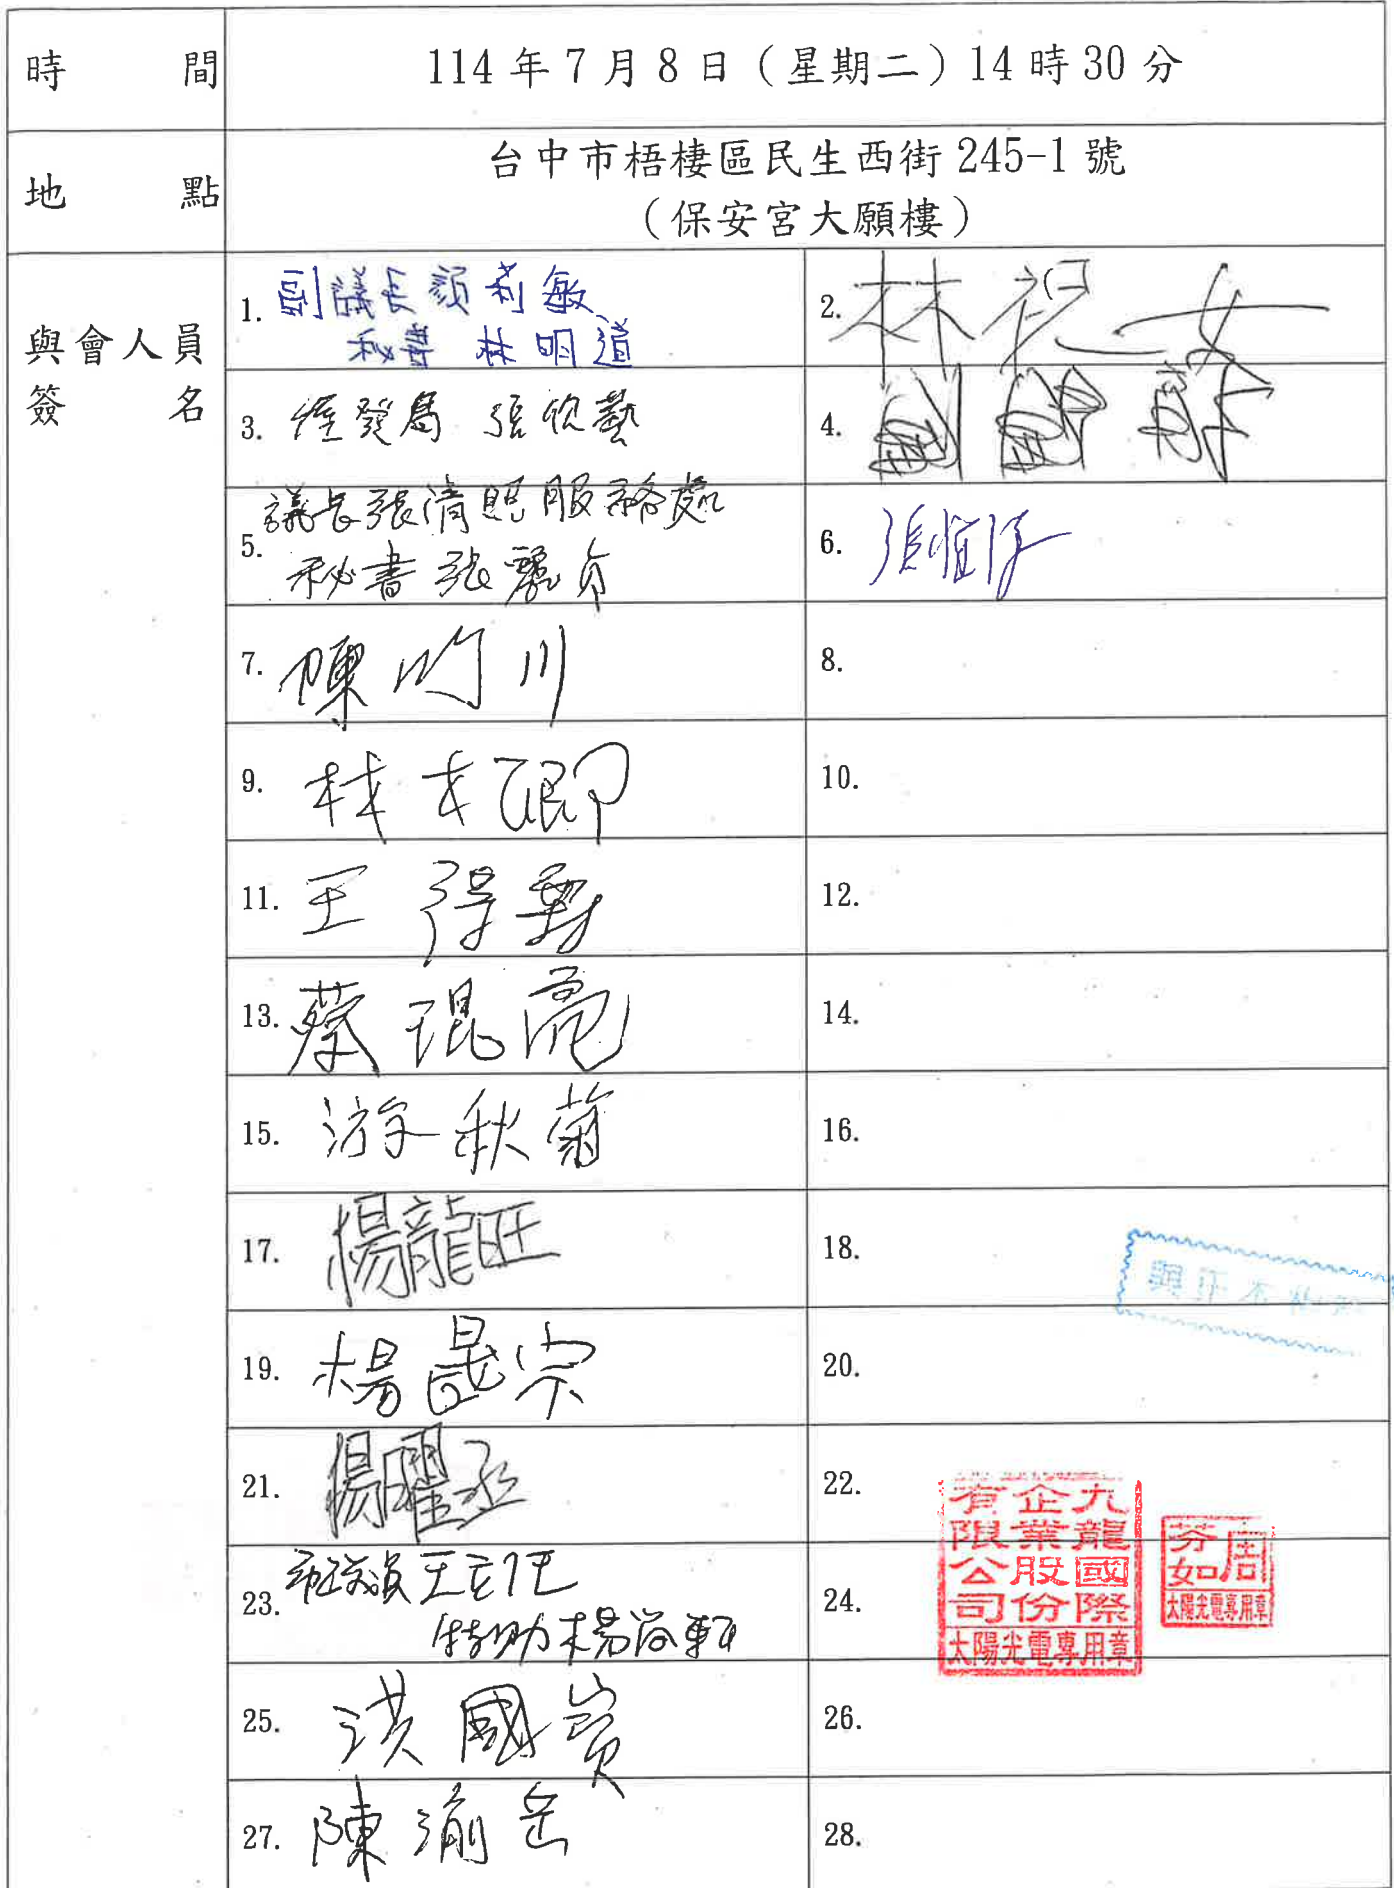 時間 114年7月8日（星期二）14時30分
地點 台中市梧棲區民生西街245-1號
（保安宮大願樓）
與會人員
簽名
1. 副議長顏莉敏
秘書 林明道
2. 林祝女
3. 經發局 張欣藝
4.
5. 議長張清照服務處
秘書張麗貞
6. 張
7. 陳昀川
8.
9. 林才卿
10.
11. 王得勢
12.
13. 蔡琨亮
14.
15. 游秋菊
16.
17. 楊龍旺
18.
19. 楊晟宗
20.
21. 楊曜丞
22.
23. 市議員王立任
特助楊啟軒
24.
25. 洪國賓
26.
27. 陳渝岳
28.
與正本相符
九龍國際
企業股份
有限公司
太陽光電專用章
周
芬如
太陽光電專用章